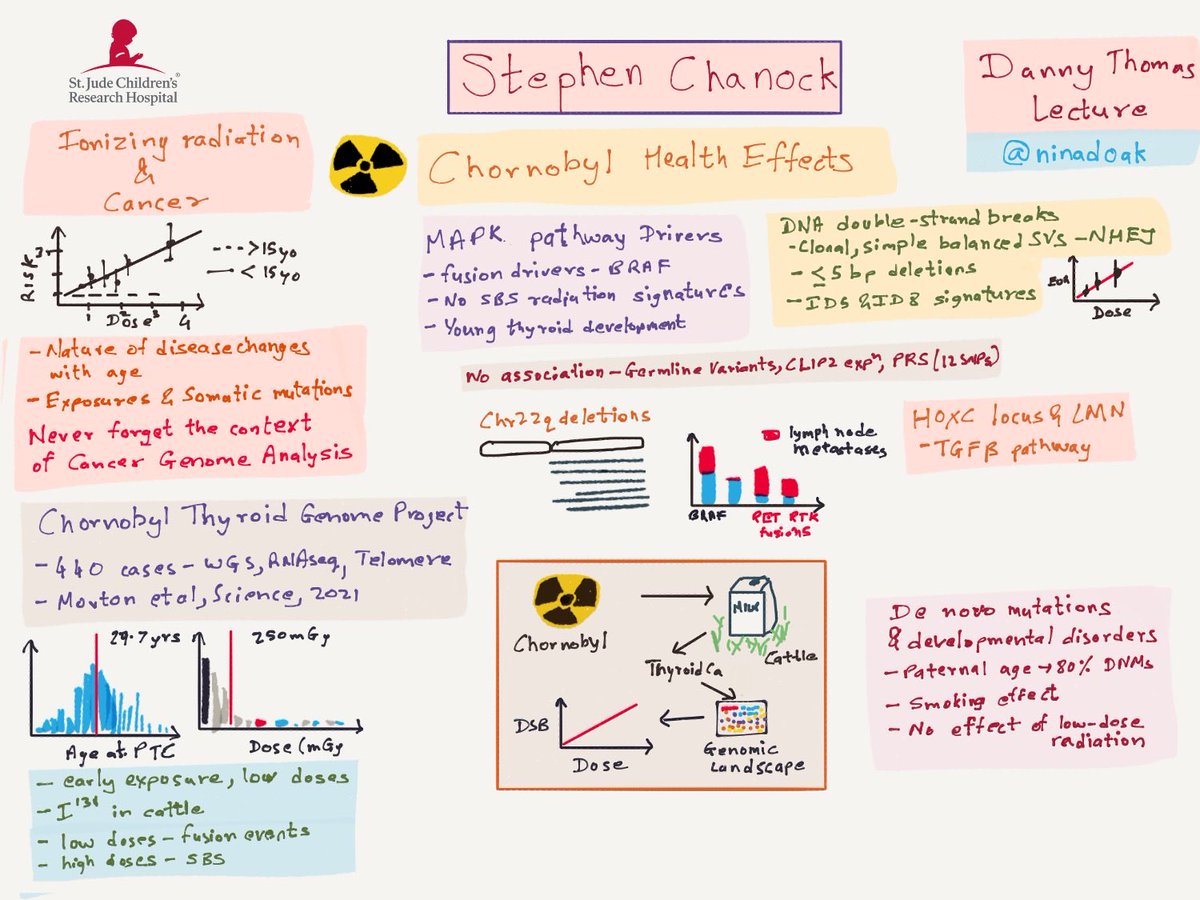 St. Jude Children's®
Research Hospital
Stephen Chanock
Danny Thomas
Lecture
@ninadoak
Ionizing radiation
&
Cancer
Chornobyl Health Effects
Risk
3
1
2
3
4
Dose
---->15yo
— < 15yo
- Nature of disease changes
with age
- Exposures & Somatic mutations
Never forget the context
of Cancer Genome Analysis
MAPK pathway Drivers
- fusion drivers - BRAF
- No SBS radiation signatures
- Young thyroid development
DNA double-strand breaks
- Clonal, simple balanced SVs - NHEJ
- ≤5 bp deletions
- ID5 & ID8 signatures
EOR
Dose
No association - Germline Variants, CLIP2 expⁿ, PRS (12 SNPs)
Chr22q deletions
lymph node
metastases
BRAF
RET RTK
fusions
HOXC locus & LMN
- TGFβ pathway
Chornobyl Thyroid Genome Project
- 440 cases - WGS, RNAseq, Telomere
- Morton et al, Science, 2021
29.7 yrs
Age at PTC
250mGy
Dose (mGy
- early exposure, low doses
- I¹³¹ in cattle
- low doses - fusion events
- high doses - SBS
Chornobyl
MILK
Cattle
Thyroid Ca
Genomic
Landscape
DSB
Dose
De novo mutations
& developmental disorders
- Paternal age → 80% DNMs
- Smoking effect
- No effect of low-dose
radiation